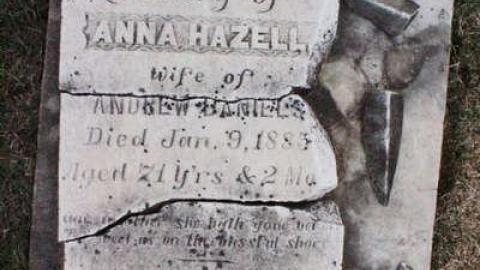 ANNA HAZELL
wife of
ANDREW DANIELS
Died Jan. 9, 1885
Aged 71 Y'rs & 2 Mo
she hath gone
us on the blissful shore